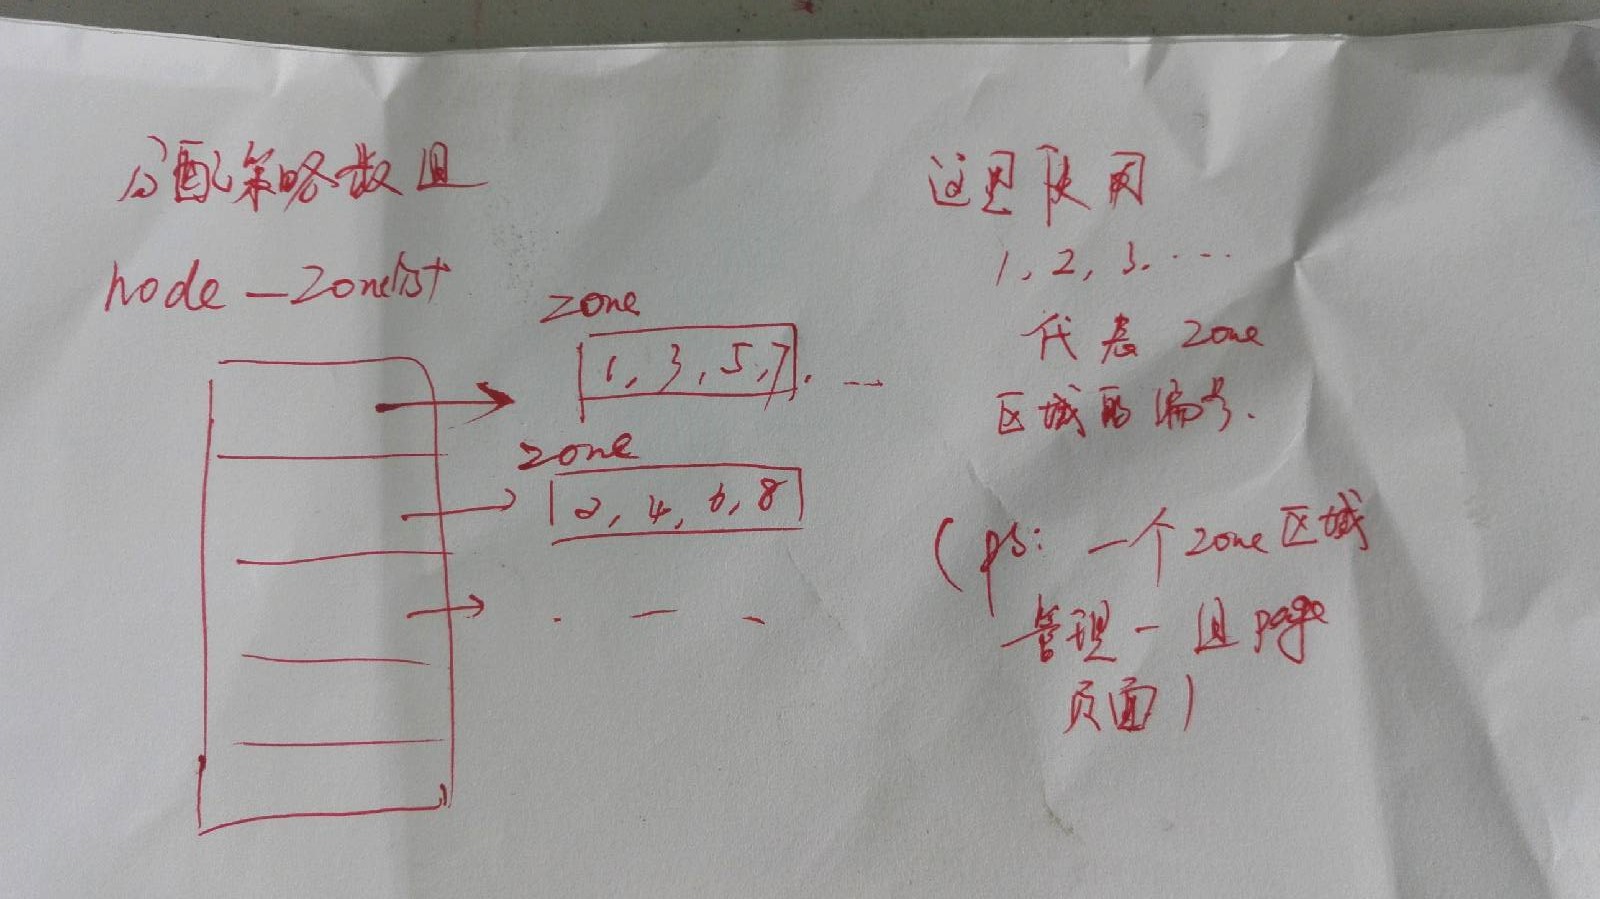 分配策略数组
node_zonelist
zone
1, 3, 5, 7, ...
zone
2, 4, 6, 8
...
这里使用
1, 2, 3, ....
代表 zone
区域的编号.
(ps: 一个zone区域
管理一组page
页面)